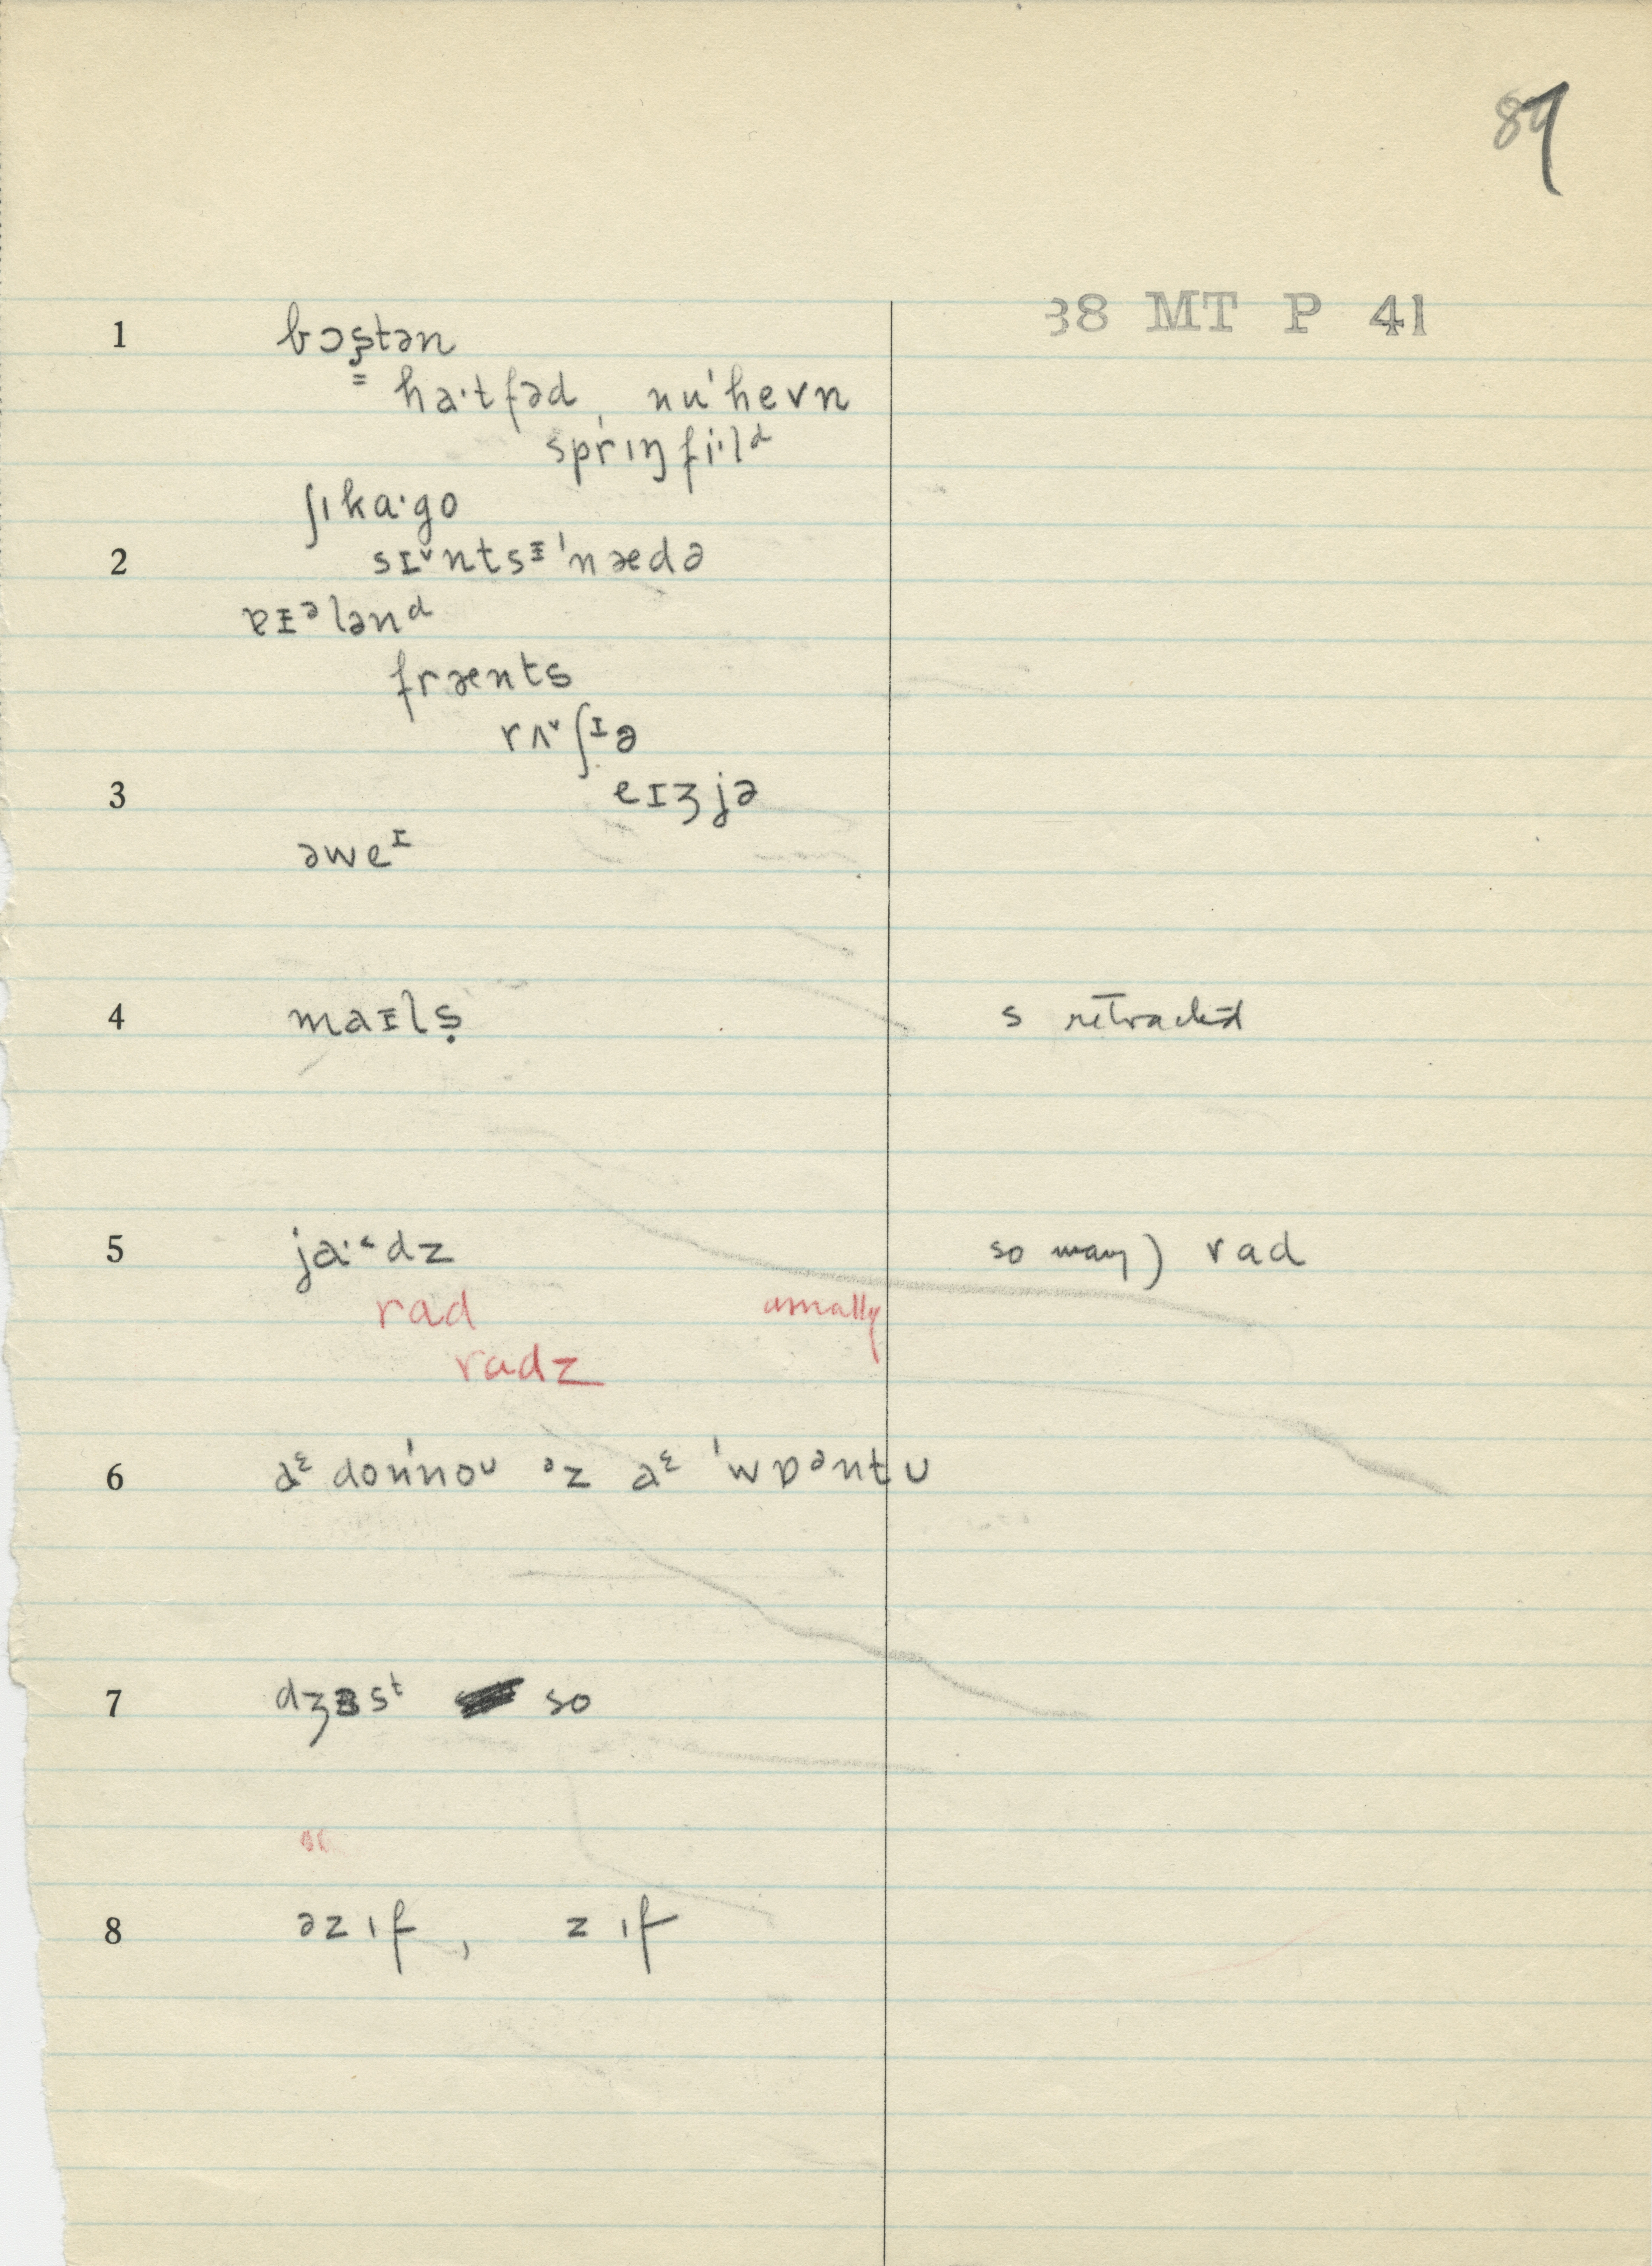 87
38 MT P 41
1 bɔʂtən
= ha·tfəd, nu'hevn
sprɪŋfi·lᵈ
ʃɪka·go
2 sɪˇntsᵻ'nædə
ɐᵻᵊlənᵈ
frænts
rʌˇʃᶦə
3 eɪʒjə
əweᶦ
4 maᵻlṣ s retracted
5 ja·˂dz so many) rad
rad usually
radz
6 aᵋ don'noᶷ ᵊz aᵋ 'wɒᵊntʊ
7 dʒɜsᵗ so
8 əzɪf, zɪf